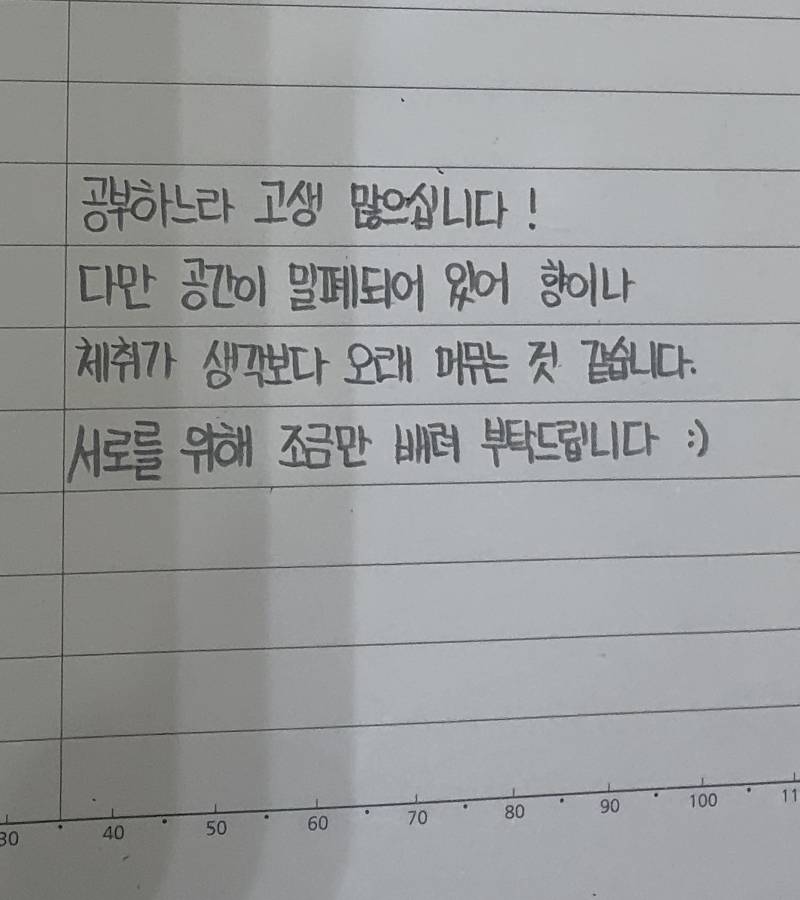 공부하느라 고생 많으십니다!
다만 공간이 밀폐되어 있어 향이나
체취가 생각보다 오래 머무는 것 같습니다.
서로를 위해 조금만 배려 부탁드립니다 :)
30 40 50 60 70 80 90 100 11